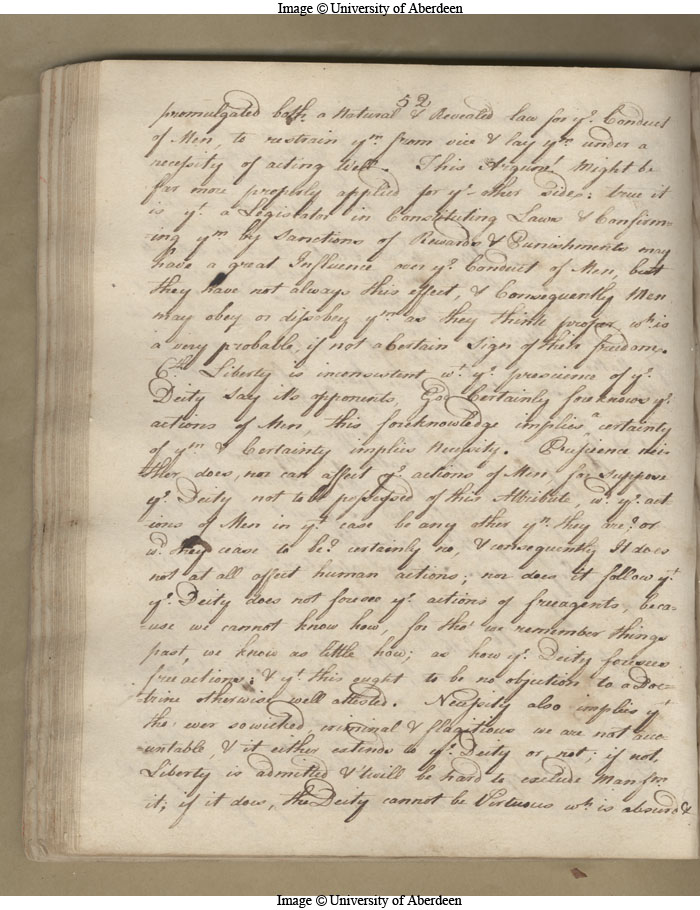 Image © University of Aberdeen
52
promulgated both a Natural & Revealed law for ye. Conduct
of Men, to restrain ym. from vice & lay ym under a
necessity of acting Well. This Argumt. Might be
far more properly applied for ye. other side: true it
is yt. a Legislator in Constituting Laws & Confirm-
ing ym by Sanctions of Rewards & Punishments may
have a great Influence over ye. Conduct of Men, but
they have not always this effect, & Consequently Men
may obey or dissobey ym. as they think proper wh. is
a very probable, if not a Certain Sign of their freedom.
6th. Liberty is inconsistent wt. ye. prescience of ye.
Deity say its opponents, God Certainly foreknows ye.
actions of Men, this foreknowledge implies a certainty
of ym & Certainty implies Necessity. Prescience nei-
ther does, nor can affect ye. actions of Men for suppose
ye. Deity not to be possessed of this Attribute, wd. ye. act-
ions of Men in yt. case be any other yn. they are? or
wd. they cease to be? certainly no, & consequently It does
not at all affect human actions; nor does it follow yt.
ye. Deity does not foresee ye. actions of free agents, beca-
-use we cannot know how, for tho' we remember things
past, we know as little how; as how ye. Deity foresees
free actions: & yt. this ought to be no objection to a Doc-
trine otherwise well attested. Necessity also implies yt
tho' ever so wicked, criminal & flagitious we are not acco-
untable, & it either extends to ye. Deity or not; if not,
Liberty is admitted & 'twill be hard to exclude Man fm
it; if it does, the Deity cannot be Virtuous wh. is absurd &
Image © University of Aberdeen